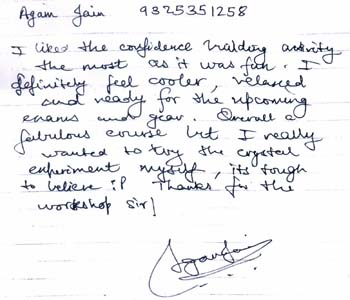 Agam Jain 9325351258
I liked the confidence building activity
the most as it was fun. I
definitely feel cooler, relaxed
and ready for the upcoming
exams and year. Overall a
fabulous course but I really
wanted to try the crystal
experiment myself, its tough
to believe :P Thanks for the
workshop sir!
Agam Jain